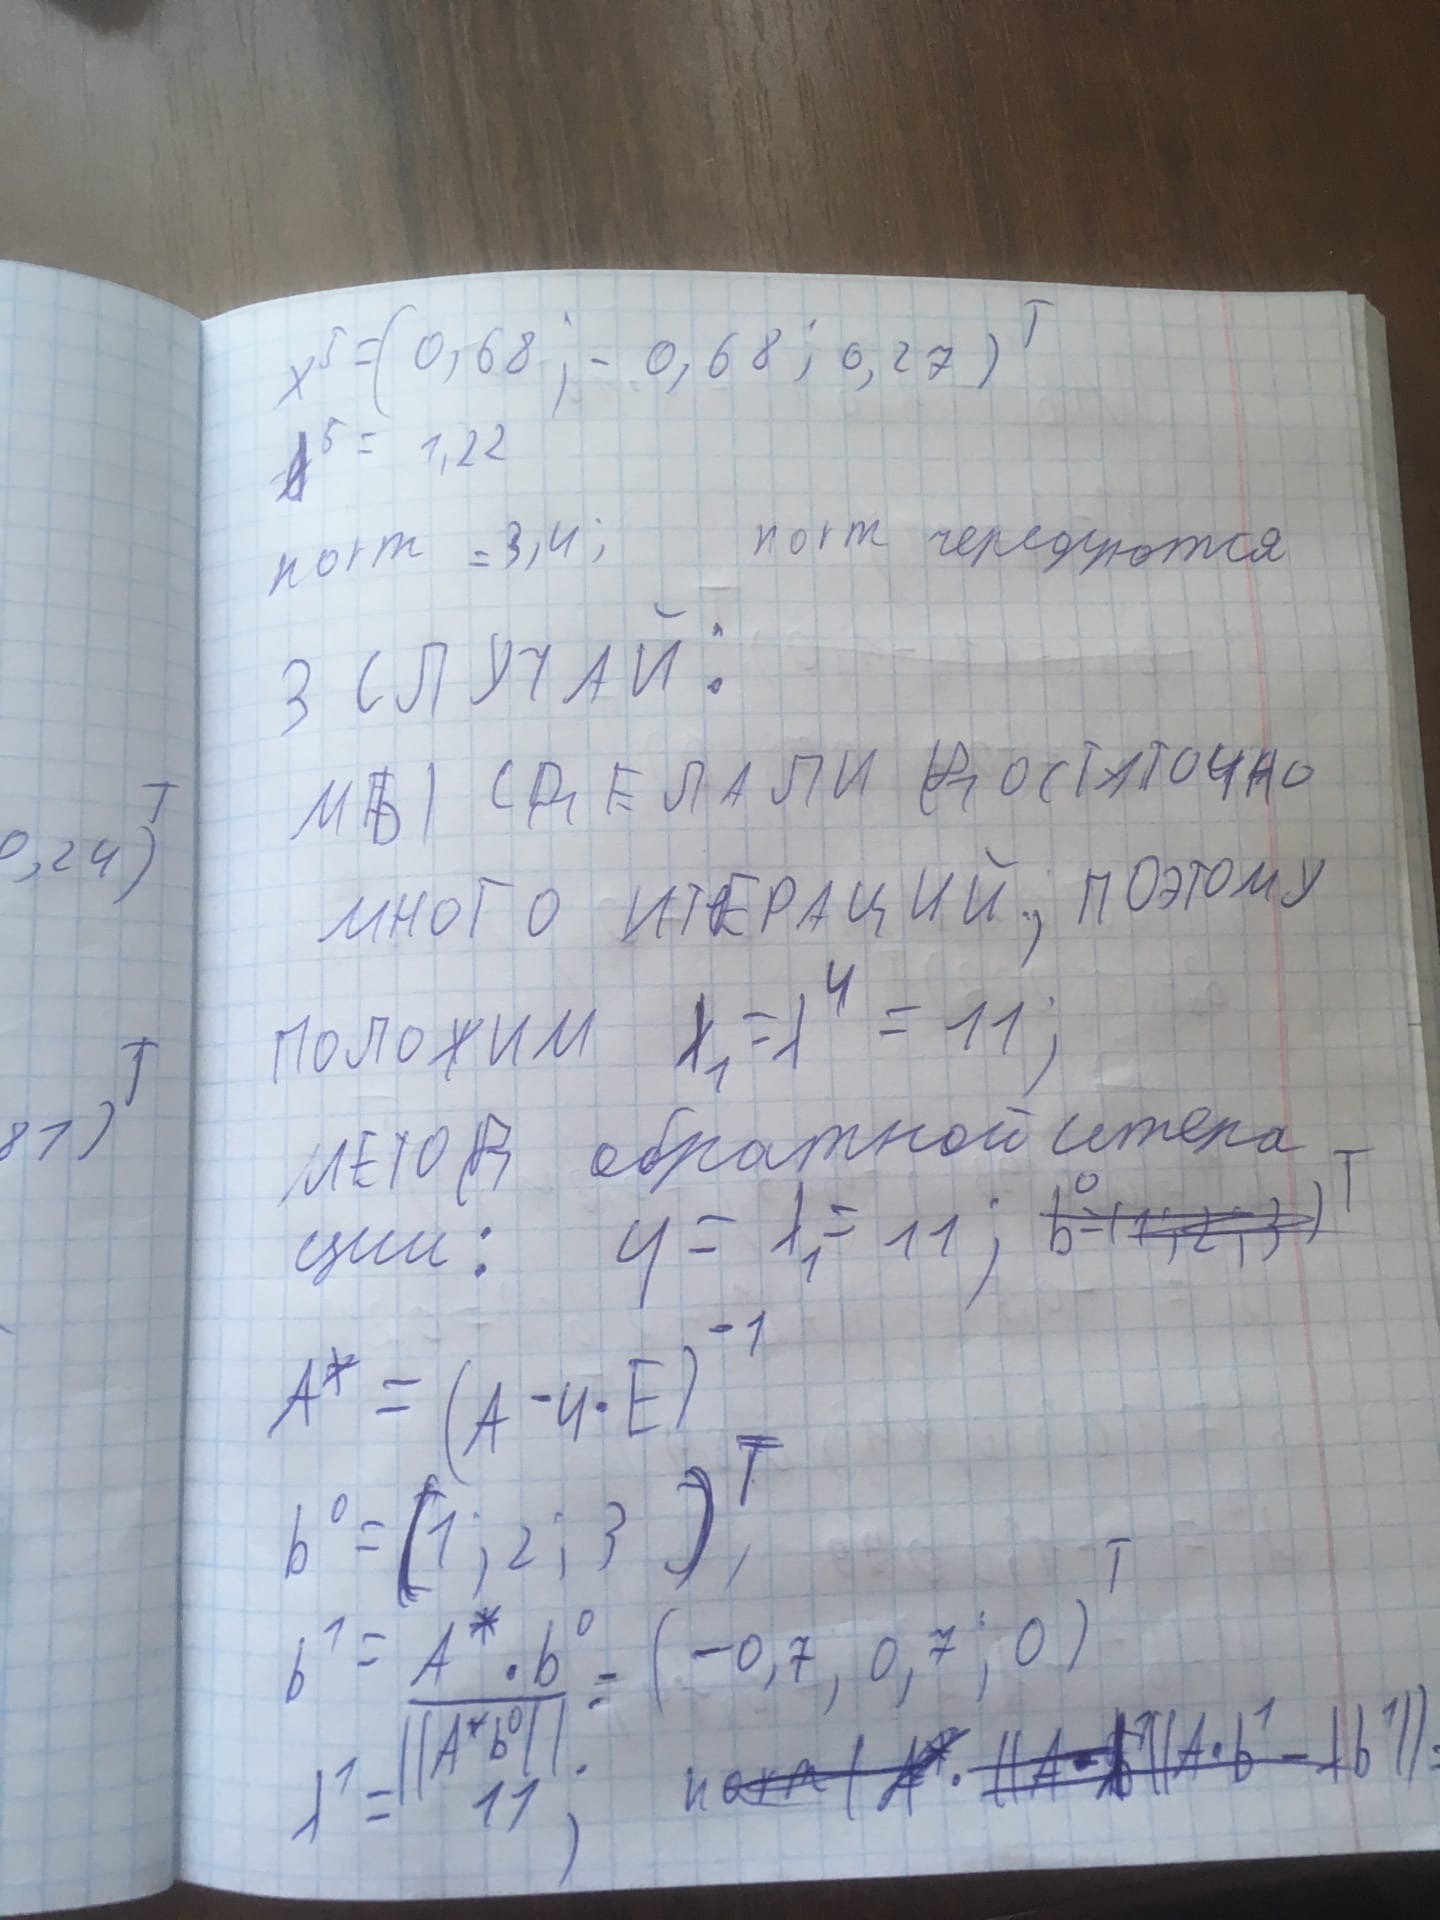 0,24)ᵀ
81)ᵀ
x⁵=(0,68; -0,68; 0,27)ᵀ
λ⁵= 1,22
norm =3,4; norm чередуются
3 СЛУЧАЙ:
МЫ СДЕЛАЛИ ДОСТАТОЧНО
МНОГО ИТЕРАЦИЙ, ПОЭТОМУ
ПОЛОЖИМ λ₁=λ⁴ = 11;
МЕТОД обратной итера
ции: μ = λ₁= 11; b⁰=(1; 2; 3)ᵀ
A* = (A - μ·E)⁻¹
b⁰ = (1; 2; 3)ᵀ,
b¹ = A*·b⁰ / ||A*b⁰|| = (-0,7, 0,7; 0)ᵀ
λ¹ = 11; ||A·b¹ - λb¹||=